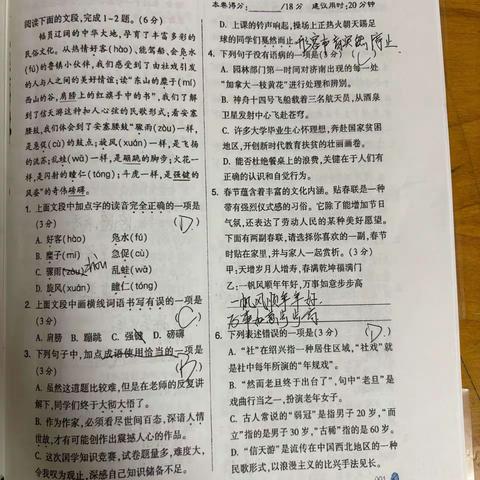 阅读下面的文段,完成1~2题。(6分)
幅员辽阔的中华大地,孕育了丰富多彩的
民俗文化。从热情好客(hào)、能驾船、会凫水
(fú)的鲁镇小伙伴,我们感受到了由社戏引发
的人与人之间的美好情谊;读“东山的糜子(mí)
西山的谷,肩膀上的红旗手中的书”,我们了解
到了信天游这种扣人心弦的民歌形式;看安塞
腰鼓,我们体会到了安塞腰鼓“骤雨(zòu)一样,
是急促(cù)的鼓点;旋风(xuán)一样,是飞扬
的流苏;乱蛙(wā)一样,是蹦跳的脚步;火花一
样,是闪射的瞳仁(tóng);斗虎一样,是强健的
风姿”的奇伟磅礴。
1. 上面文段中加点字的读音完全正确的一项是
(3分) (D)
A. 好客(hào) 凫水(fú)
B. 糜子(mí) 急促(cù)
C. 骤雨(zòu) zhòu 乱蛙(wā)
D. 旋风(xuán) 瞳仁(tóng)
2. 上面文段中画横线词语书写有误的一项是
(3分) (C)
A. 肩膀 B. 蹦跳 C. 强健 D. 磅礴
3. 下列句子中,加点成语使用恰当的一项是
(3分) (D)
A. 虽然这道题比较难,但是在老师的反复讲
解下,同学们终于大彻大悟了。
B. 作为作家,必须看尽世间百态,深谙人情
世故,才有可能创作出震撼人心的作品。
C. 这次国学知识竞赛,试卷题量多,难度大,
令我叹为观止,深感自己知识储备不足。
本卷得分: /18分 建议用时:20分钟
D. 上课的铃声响起,操场上正热火朝天踢足
球的同学们戛然而止。
4. 下列句子没有语病的一项是(3分) (C)
A. 园林部门第一时间对济南出现的每一处
“加拿大一枝黄花”进行处理和辨别。
B. 神舟十四号飞船载着三名航天员,从酒泉
卫星发射中心飞赴苍穹。
C. 许多大学毕业生心怀理想,奔赴国家贫困
地区,开创新时代教育扶贫的壮丽画卷。
D. 能否杜绝餐桌上的浪费,关键在于人们有
正确的认识和自觉行为。
5. 春节蕴含着丰富的文化内涵。贴春联是一种
带有强烈仪式感的习俗。它除了能增加节日
气氛,还表达了劳动人民的某种美好愿望。
下面有两副春联,请选择你喜欢的一副,春节
时贴在家里,并与家人一起赏析。(3分)
甲:天增岁月人增寿,春满乾坤福满门
乙:一帆风顺年年好,万事如意步步高
一帆风顺年年好
6. 下列表述错误的一项是(3分) (D)
A. “社”在绍兴指一种居住区域,“社戏”就
是社中每年所演的“年规戏”。
B. “然而老旦终于出台了”,句中“老旦”是
戏曲行当之一,扮演老年女子。
C. 古人常说的“弱冠”是指男子20岁,“而
立”指的是男子30岁,“古稀”指的是60岁。
D. “信天游”是流传在中国西北地区的一种
民歌形式,以浪漫主义的比兴手法见长。
001